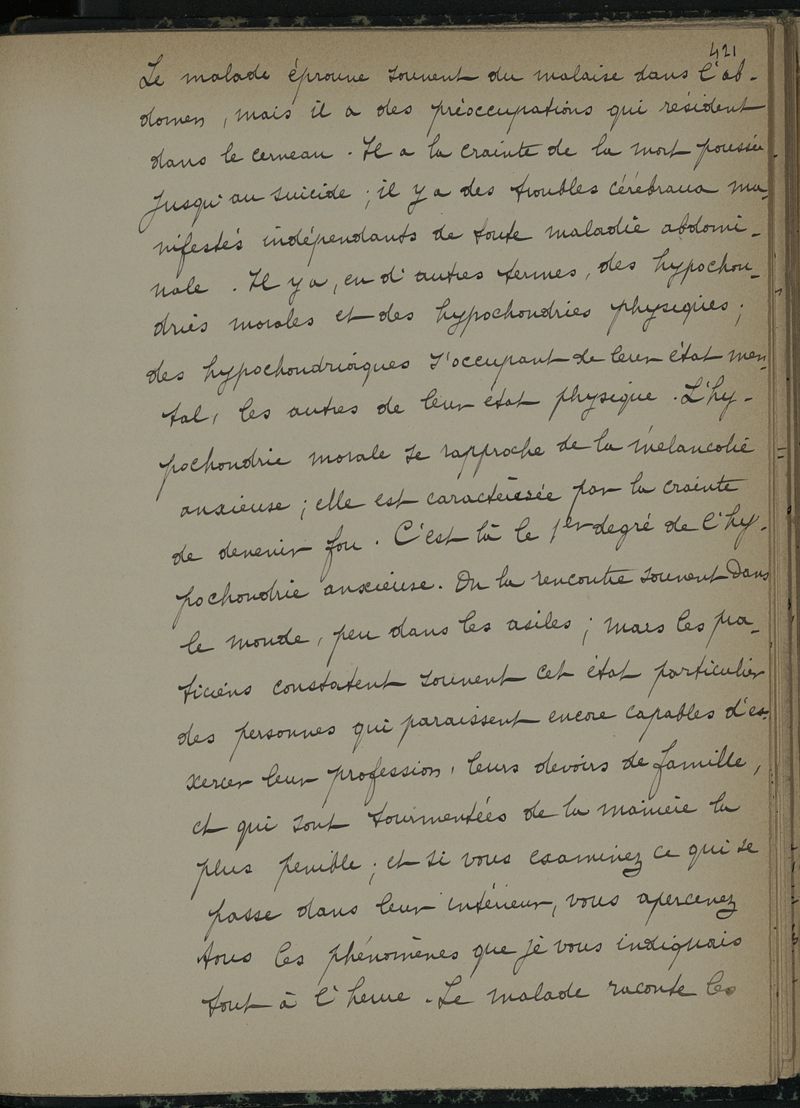 421
Le malade éprouve souvent du malaise dans l'ab-
domen, mais il a des préoccupations qui résident
dans le cerveau. Il a la crainte de la mort poussée
jusqu'au suicide ; il y a des troubles cérébraux ma-
nifestés indépendants de toute maladie abdomi-
nale. Il y a, en d'autres termes, des hypochon-
dries morales et des hypochondries physiques ;
des hypochondriaques s'occupant de leur état men-
tal, les autres de leur état physique. L'hy-
pochondrie morale se rapproche de la mélancolie
anxieuse ; elle est caractérisée par la crainte
de devenir fou. C'est là le 1er degré de l'hy-
pochondrie anxieuse. On la rencontre souvent Dans
le monde, peu dans les asiles ; mais les pra-
ticiens constatent souvent cet état particulier
des personnes qui paraissent encore capables d'ex-
xercer leur profession, leurs devoirs de famille,
et qui sont tourmentées de la manière la
plus penible ; et si vous examinez ce qui se
passe dans leur intérieur, vous apercevez
tous les phénomènes que je vous indiquais
tout à l'heure. Le malade raconte les